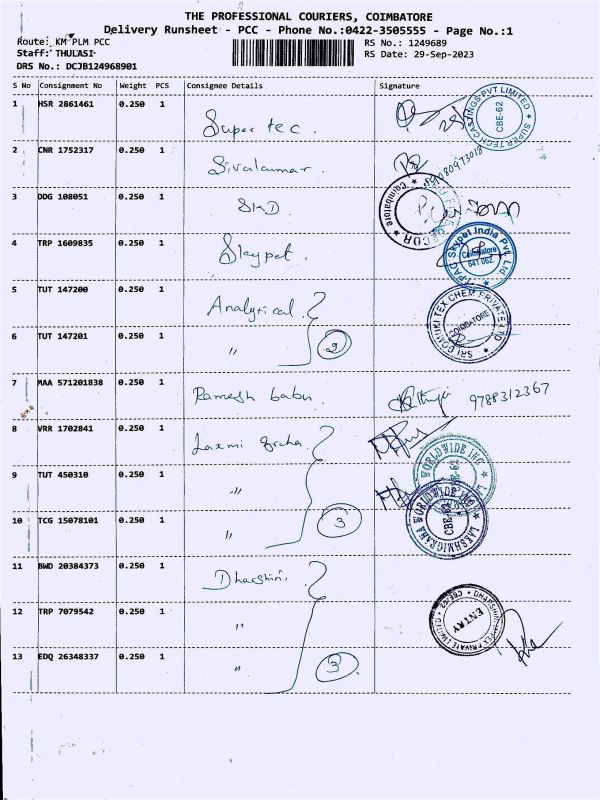 THE PROFESSIONAL COURIERS, COIMBATORE
Delivery Runsheet - PCC - Phone No.:0422-3505555 - Page No.:1
Route: KM PLM PCC
RS No.: 1249689
Staff: THULASI
RS Date: 29-Sep-2023
DRS No.: DCJB124968901
S No Consignment No Weight PCS Consignee Details Signature
1 HSR 2861461 0.250 1 Super tec.
SUPER TECH CASTINGS PVT LIMITED CBE-62
2 CNR 1752317 0.250 1 Sivakumar
3 DDG 108051 0.250 1 SKD
Coimbatore
4 TRP 1609835 0.250 1 Skypet.
Skypet India Pvt Ltd Coimbatore 641 062
5 TUT 147200 0.250 1 Analytical
SRI GOMUKI TEX CHEM PRIVATE LTD COIMBATORE
6 TUT 147201 0.250 1 〃 2
7 MAA 571201838 0.250 1 Ramesh babu 9788312367
8 VRR 1702841 0.250 1 Laxmi graha
WORLDWIDE INC CBE-62
9 TUT 450310 0.250 1 〃
LAKSHMIGRAHA WORLDWIDE INC CBE-62
10 TCG 15078101 0.250 1 〃 3
11 BWD 20384373 0.250 1 Dharshini
12 TRP 7079542 0.250 1 〃
PRIVATE LIMITED CBE-62 ENTRY
13 EDQ 26348337 0.250 1 〃 3